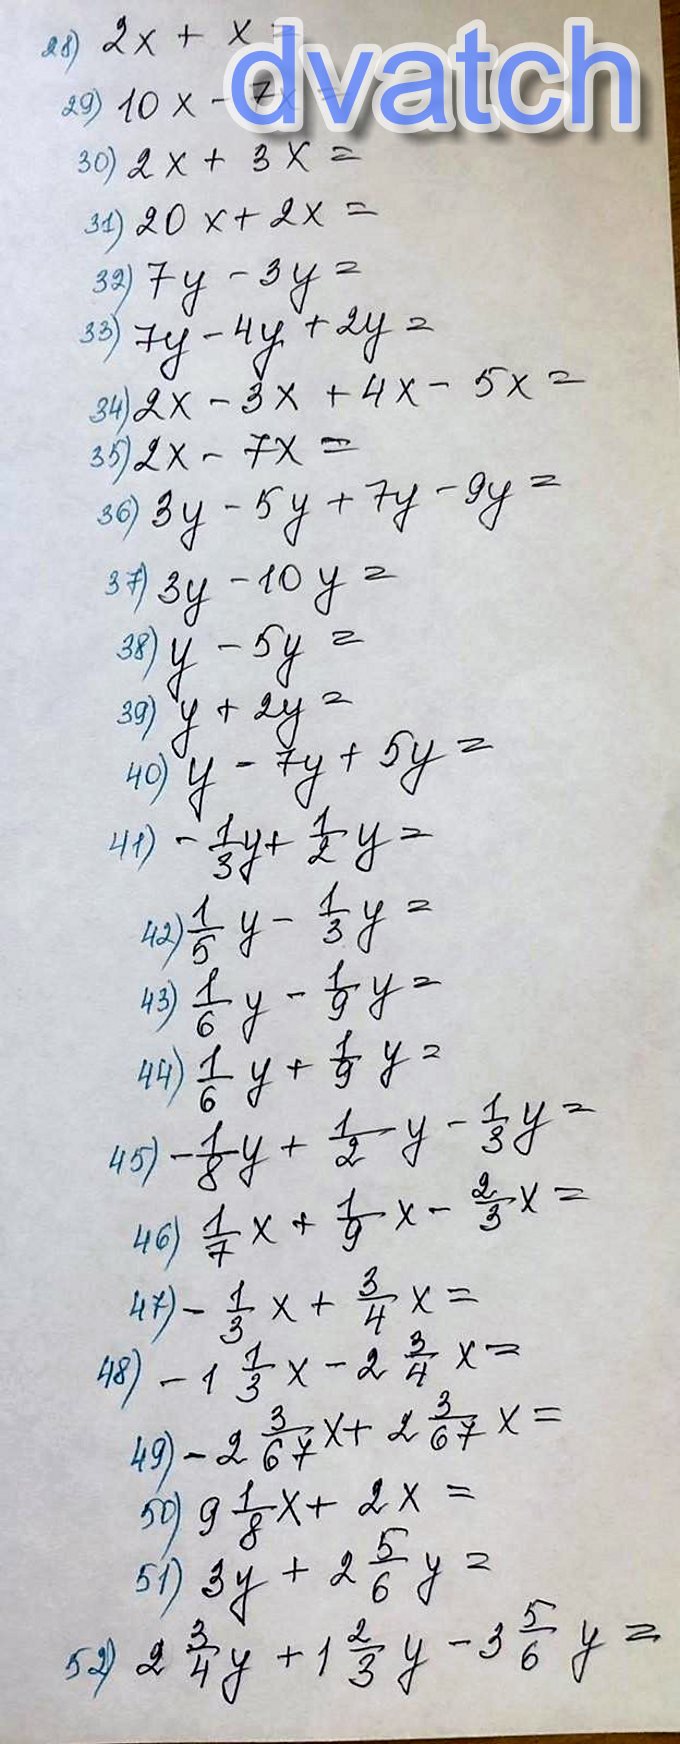 dvatch
28) 2x + x =
29) 10x - 7x =
30) 2x + 3x =
31) 20x + 2x =
32) 7y - 3y =
33) 7y - 4y + 2y =
34) 2x - 3x + 4x - 5x =
35) 2x - 7x =
36) 3y - 5y + 7y - 9y =
37) 3y - 10y =
38) y - 5y =
39) y + 2y =
40) y - 7y + 5y =
41) - 1/3 y + 1/2 y =
42) 1/5 y - 1/3 y =
43) 1/6 y - 1/9 y =
44) 1/6 y + 1/9 y =
45) - 1/8 y + 1/2 y - 1/3 y =
46) 1/7 x + 1/9 x - 2/3 x =
47) - 1/3 x + 3/4 x =
48) - 1 1/3 x - 2 3/4 x =
49) - 2 3/67 x + 2 3/67 x =
50) 9 1/8 x + 2x =
51) 3y + 2 5/6 y =
52) 2 3/4 y + 1 2/3 y - 3 5/6 y =